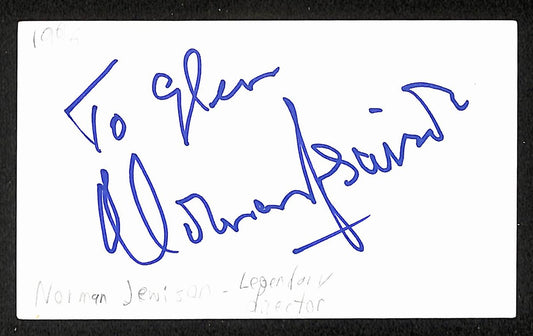 To Glenn
Norman Jewison
Norman Jewison - Legendary
Director